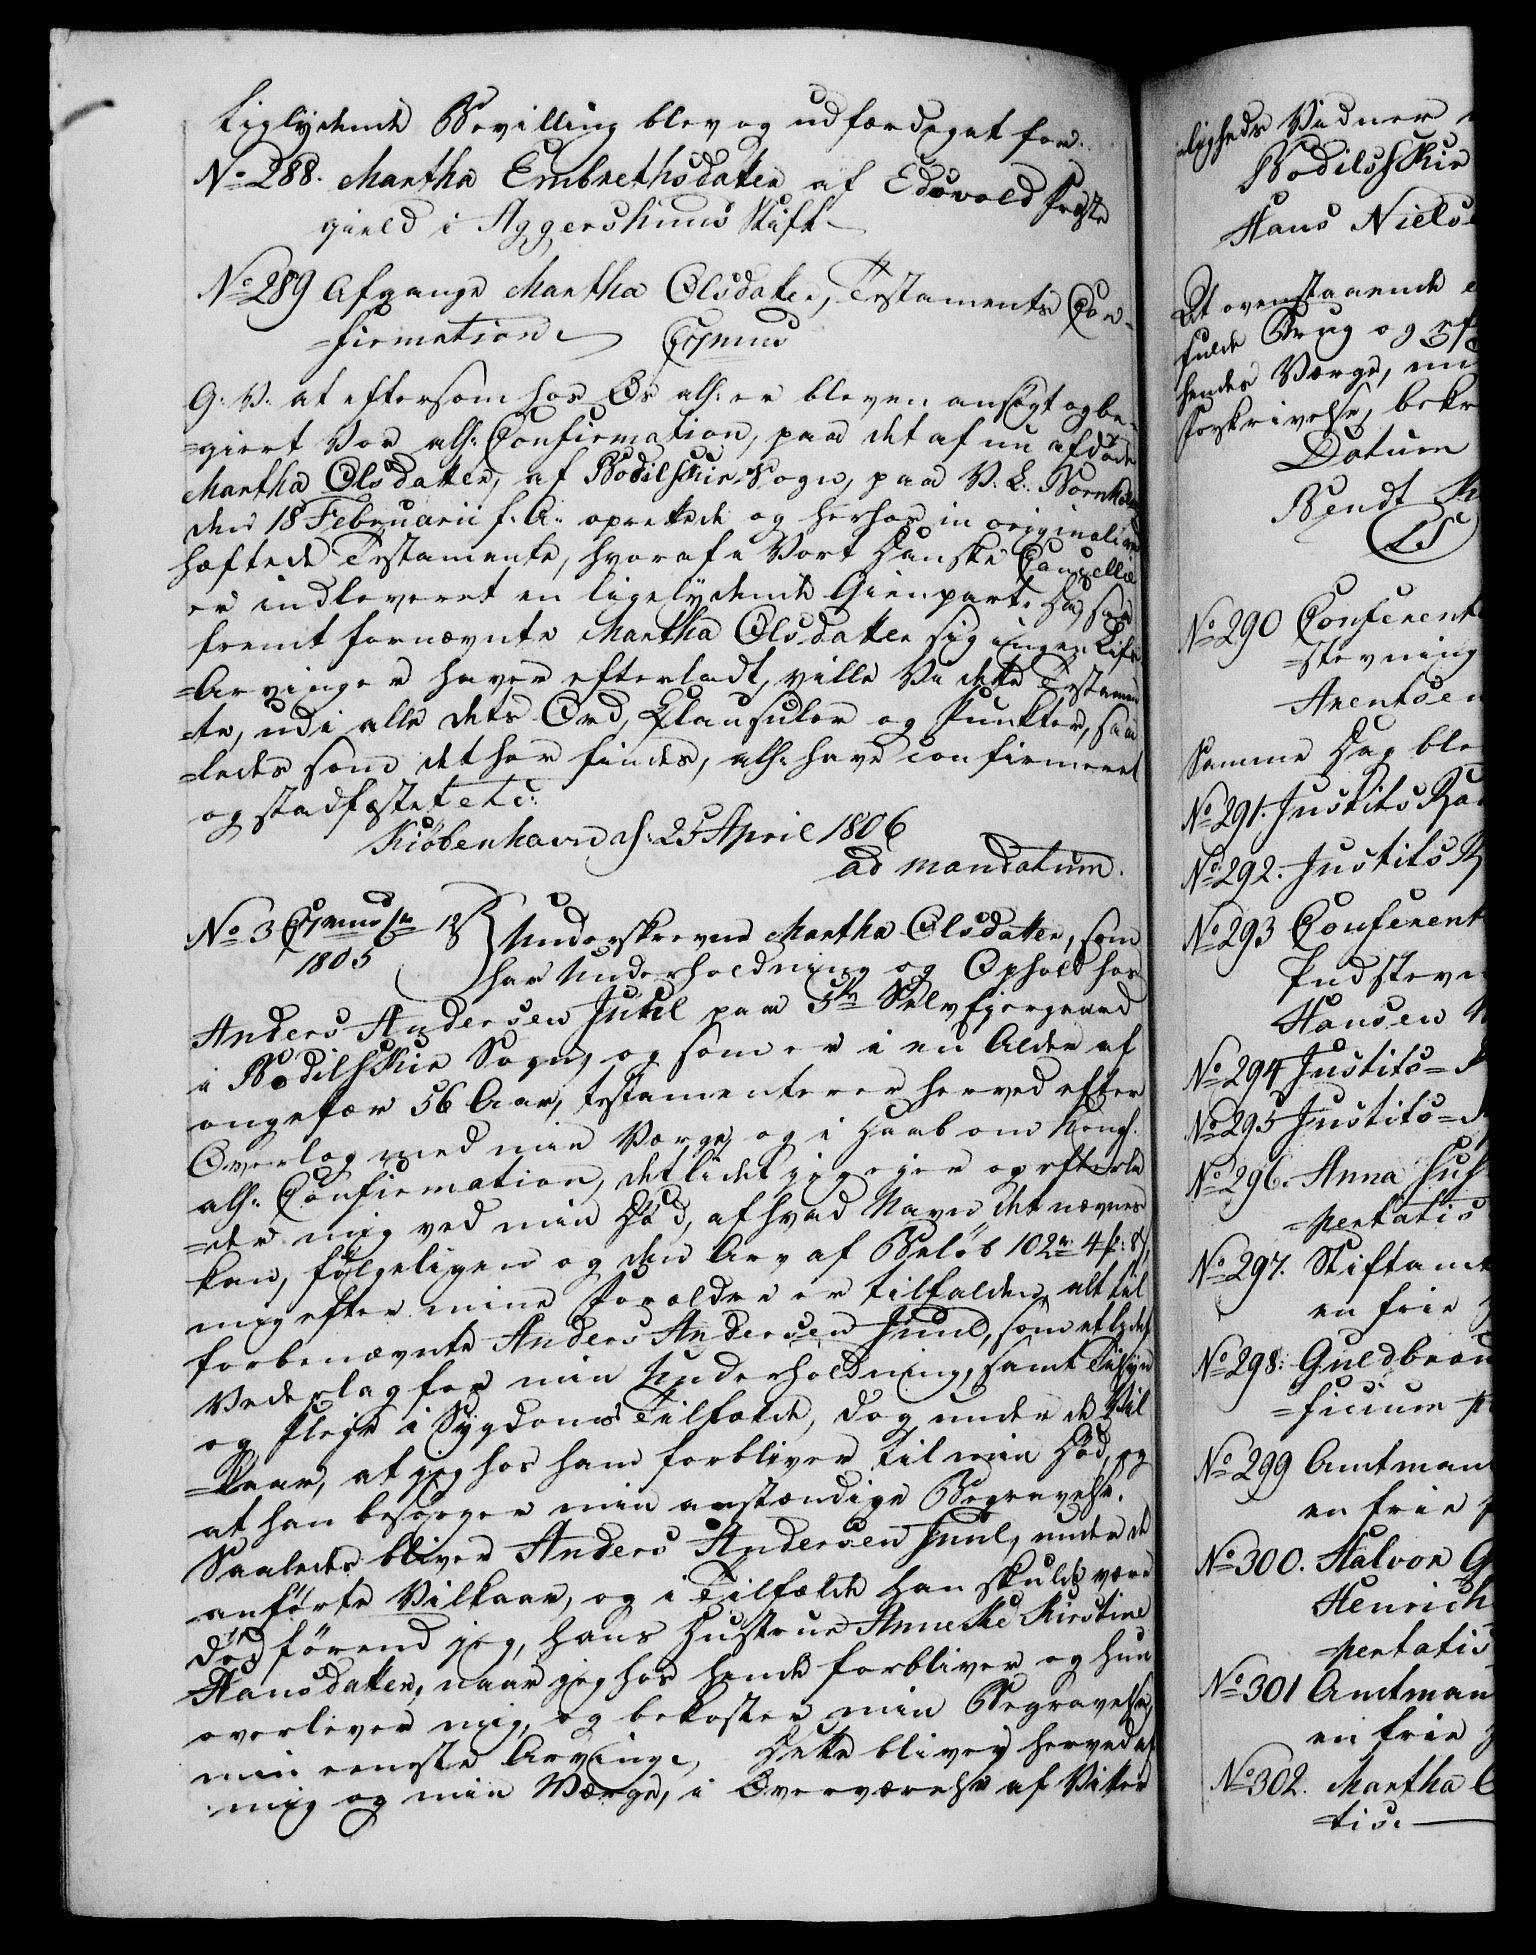 Liglydende Bevilling blev og udfærdiget for.
No 288. Martha Embrethsdatter af Edsvold Præste
gield i Aggershuus Stift
No 289 Afgangne Martha Olsdatter, Testaments Con-
=firmation.
G. V. at eftersom hos Os allr. er bleven ansøgt og be-
=gieret Vor allr. Confirmation, paa det af nu afdøde
Martha Olsdatter, af Bodilskier Sogn, paa V. L. Bornholm
den 18 Februarii f. A. oprettede og herhos in originali
hæftede Testamente, hvoraf i Vort Danske Cancellie
er indleveret en ligelydende Gienpart. Da, saa
fremt fornævnte Martha Olsdatter sig ingen Livs
=Arvinger haver efterladt, ville Vi dette Testamen
=te, udi alle dets Ord, Clausuler og Punkter, saa
=ledes som det her findes, allr. have confirmeret
og stadfæstet etc:
Kiøbenhavn d. 25 April 1806
ad mandatum.
No 3 1805
Underskrevne Martha Olsdatter, som
har Underholdning og Ophold hos
Anders Andersen Juul paa 5te Selvejergaard
i Bodilskier Sogn, og som er i en Alder af
ongefær 56 Aar, testamenterer herved efter
Overlæg med min Værge, og i Haab om Kongl.
allr. Confirmation, det lidet jeg ejer og efterla
=der mig ved min Død, af hvad Navn det nævnes
kan, følgeligen og den Arv af Beløb 102 rd 4 ß,
mig efter mine Forældre er tilfalden, alt til
forbenævnte Anders Andersen Juul, som et lidet
Vederlag for min Underholdning, samt Tilsyn
og Pleje i Sygdoms Tilfælde, dog under de Vil
=kaar, at jeg hos ham forbliver til min Død, og
at han besørger min anstændige Begravelse.
Saaledes bliver Anders Andersen Juul, under de
anførte Vilkaar, og i Tilfælde han skulde være
død førend jeg, hans Hustrue Anneke Kirstine
Hansdatter, naar jeg hos hende forbliver og hun
overlever mig, og bekoster min Begravelse,
min eeneste Arvinge, Dette bliver herved af
mig og min Værge, i Overværelse af Vitter
=ligheds Vidner
Bodilsskier
Hans Niels
At ovenstaaende
fulde Brug og
hendes Værge,
forskrivelse, bekr
Datum
Bendt
LS
No 290 Conferent
=stevning
Arentsen
Samme Dag ble
No 291. Justits Raa
No 292. Justits R
No 293 Conferent
Indsteven
Hansen
No 294 Justits=
No 295 Justits=
No 296. Anna
=pertatis
No 297. Stiftamt
en frie
No 298: Guldbran
=ficium
No 299 Amtman
en frie
No 300. Halvor G
Henrich
=pertatis
No 301 Amtman
en frie
No 302. Martha
=tis.